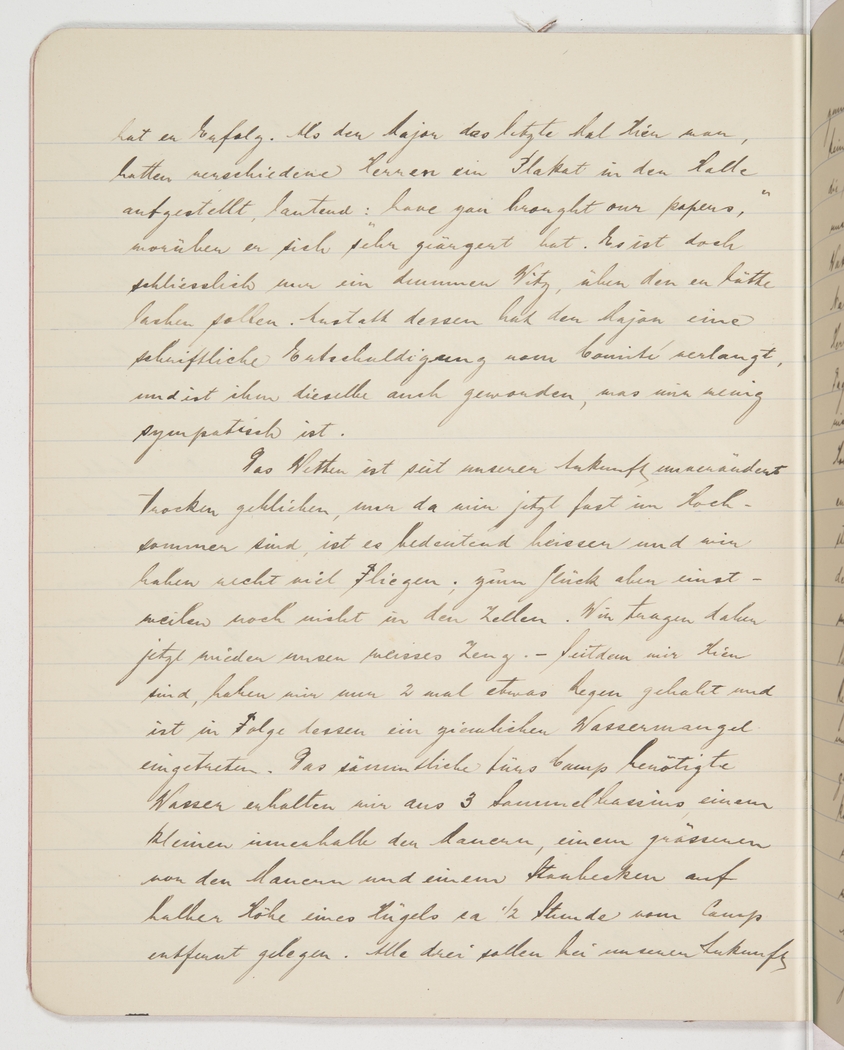 hat er Erfolg. Als der Major das letzte Mal hier war,
hatten verschiedene Herren ein Plakat in der Halle
aufgestellt, lautend: have you brought our papers,"
worüber er sich sehr geärgert hat. Es ist doch
schliesslich nur ein dummer Witz, über den er hätte
lachen sollen. Anstatt dessen hat der Major eine
schriftliche Entschuldigung vom Comité verlangt,
und ist ihm dieselbe auch geworden, was mir wenig
sympatisch ist.
Das Wetter ist seit unserer Ankunft unverändert
trocken geblieben, nur da wir jetzt fast im Hoch-
sommer sind, ist es bedeutend heisser und wir
haben recht viel Fliegen; zum Glück aber einst-
weilen noch nicht in den Zellen. Wir tragen daher
jetzt wieder unser weisses Zeug. – Seitdem wir hier
sind, haben wir nur 2 mal etwas Regen gehabt und
ist in Folge dessen ein ziemlicher Wassermangel
eingetreten. Das sämmtliche fürs Camp benötigte
Wasser erhalten wir aus 3 Sammelbassins, einem
kleinen innerhalb der Mauern, einem grösseren
vor den Mauern und einem Staubecken auf
halber Höhe eines Hügels ca 1/2 Stunde vom Camp
entfernt gelegen. Alle drei sollen bei unserer Ankunft